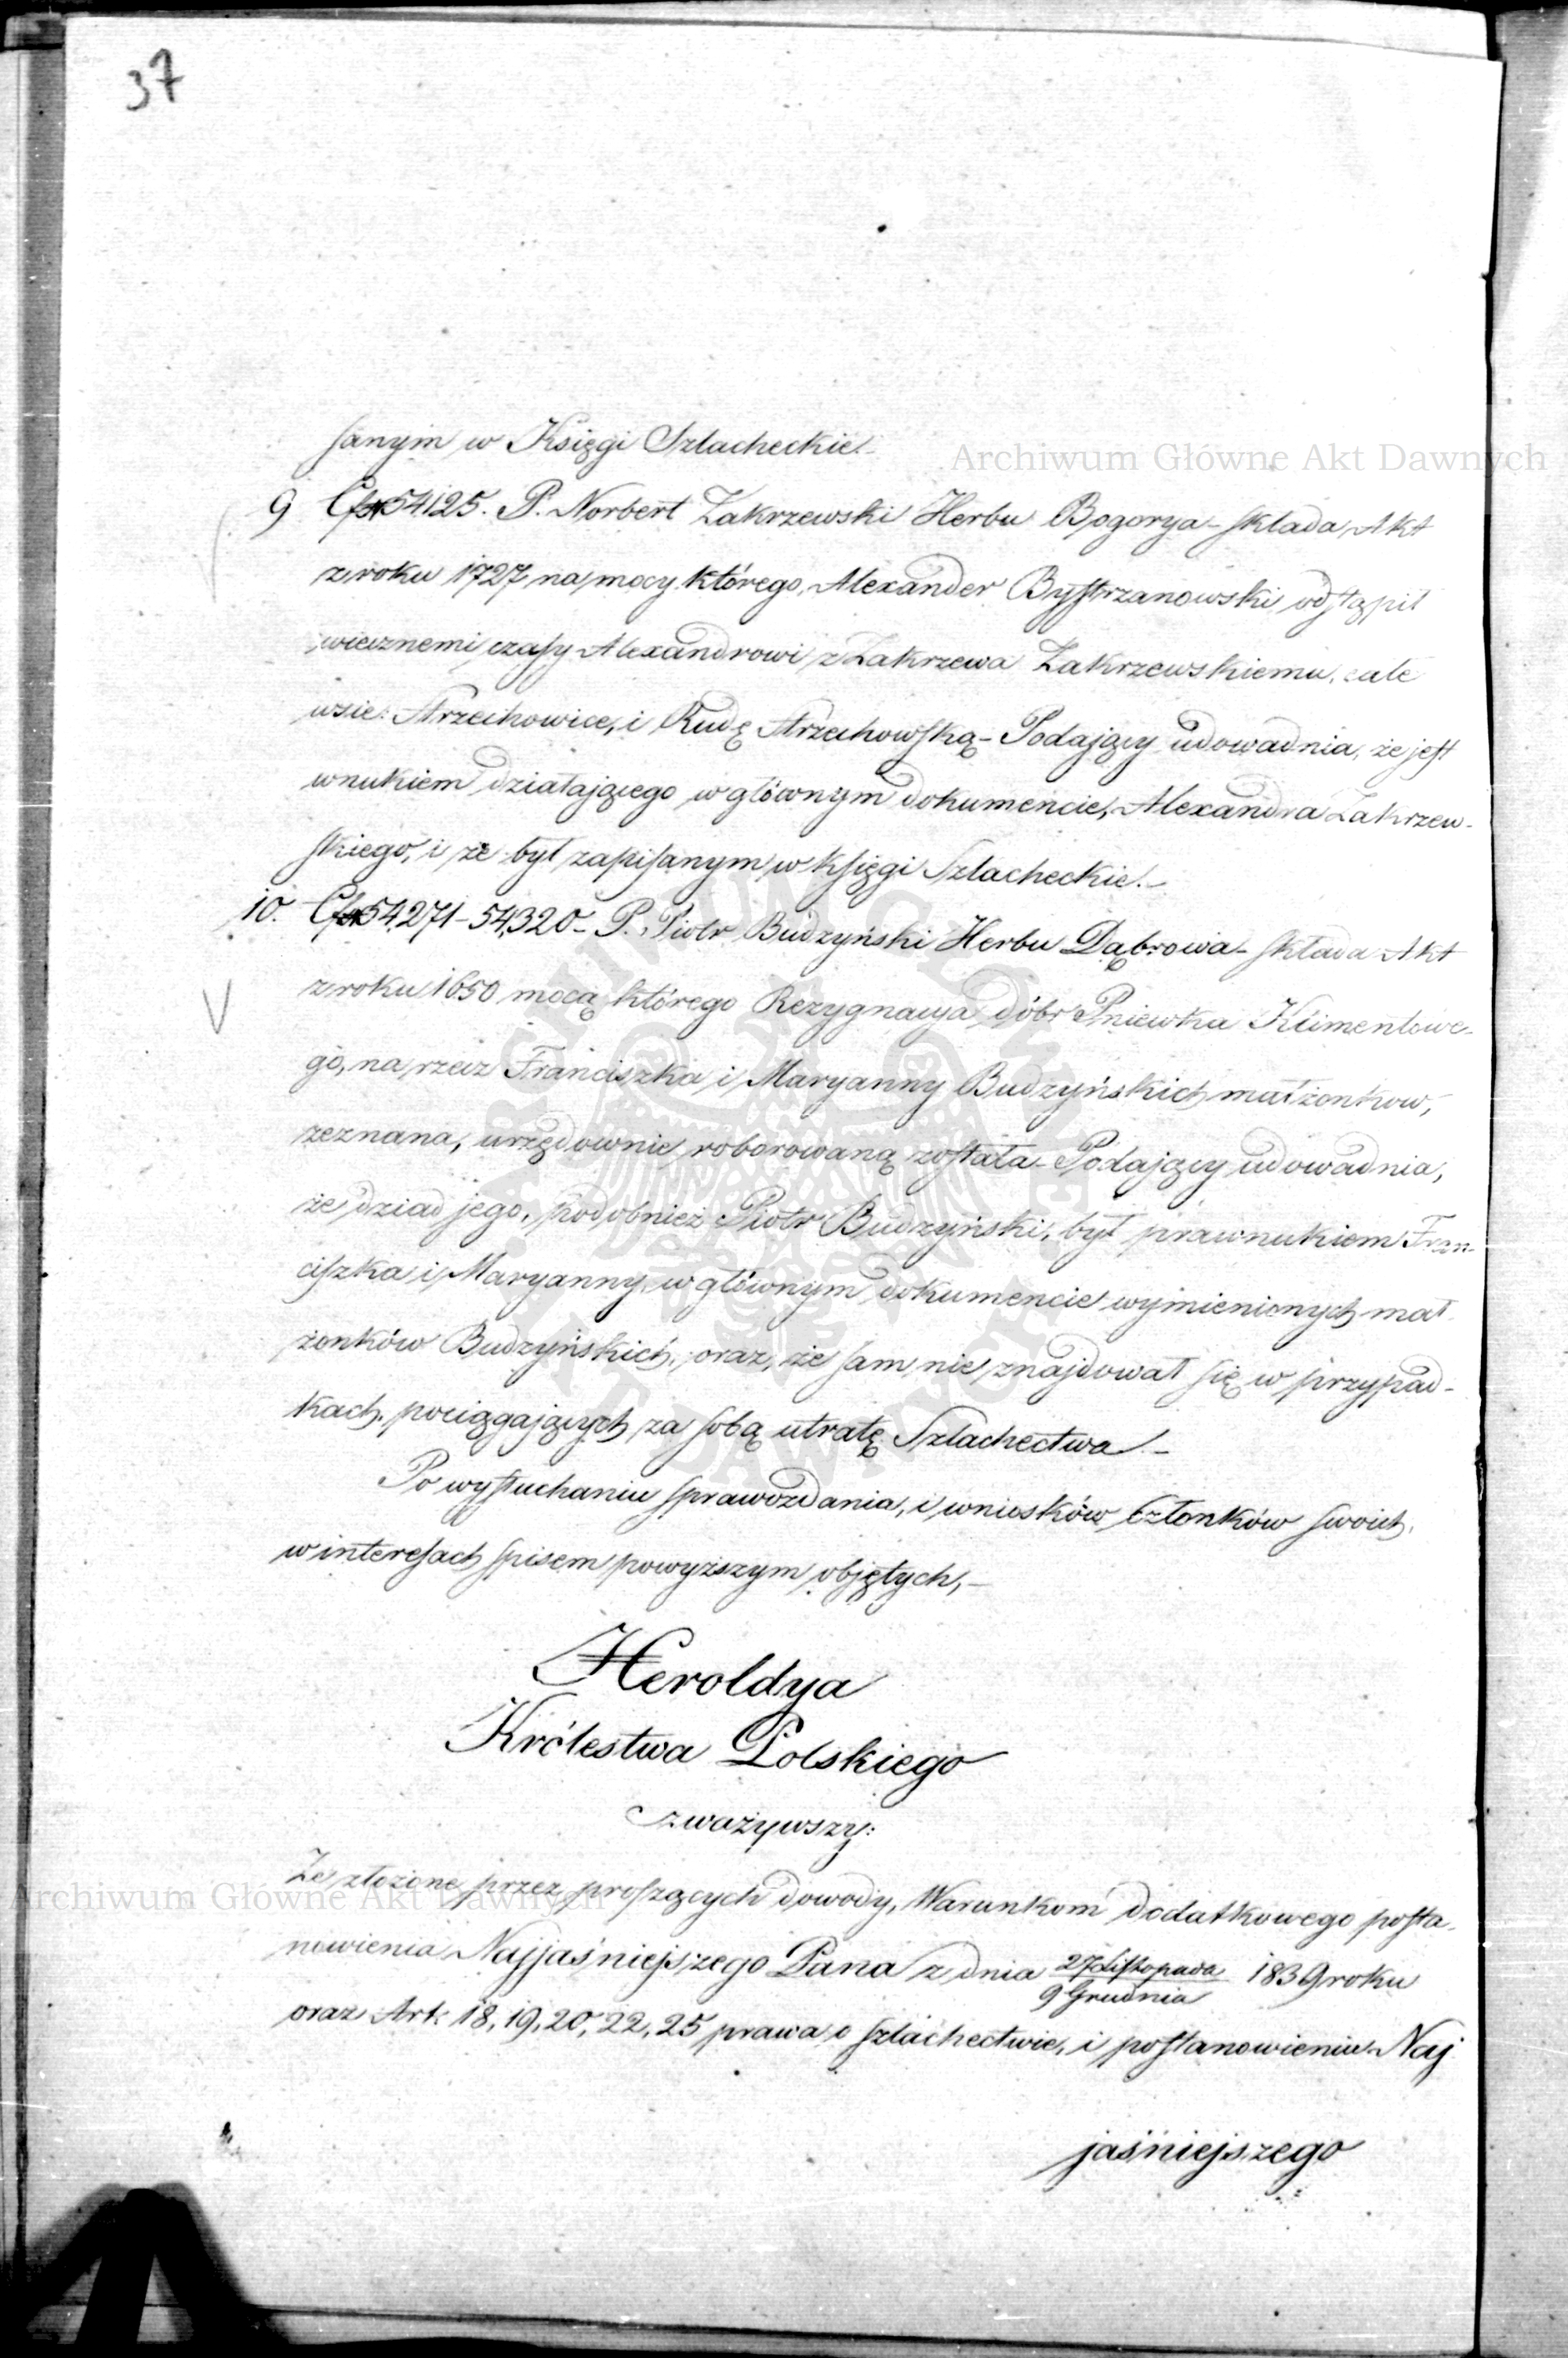 37
sanym w Księgi Szlacheckie.-
Archiwum Główne Akt Dawnych
9 54125. P. Norbert Zakrzewski Herbu Bogorya - składa Akt
z roku 1727 na mocy którego, Alexander Bystrzanowski odstąpił
wiecznemi czasy Alexandrowi z Zakrzewa Zakrzewskiemu, całe
wsie: Strzechowice, i Rudę Strzechowską - Podający udowadnia, że jest
wnukiem działającego w głównym dokumencie, Alexandra Zakrzew-
skiego, i że był zapisanym w księgi Szlacheckie.-
10. 54,271-54,320- P. Piotr Budzyński Herbu Dąbrowa - składa Akt
z roku 1650 mocą którego Rezygnacya dóbr Pniewka Klimentowe-
go, na rzecz Franciszka i Maryanny Budzyńskich małżonkow,
zeznana, urzędownie roborowaną została - Podający udowadnia,
że dziad jego, podobnież Piotr Budzyński, był prawnukiem Fran-
ciszka i Maryanny w głównym dokumencie wymienionych mał
żonków Budzyńskich, oraz, że sam nie znajdował się w przypad-
kach, pociągających za sobą utratę Szlachectwa.-
Po wysłuchaniu sprawozdania, i wniosków Członków swoich,
w interesach spisem powyższym objętych,-
Heroldya
Królestwa Polskiego
zważywszy:
Że złożone przez proszących dowody, Warunkom dodatkowego posta-
Archiwum Główne Akt Dawnych
nowienia Najjaśniejszego Pana z dnia 27 Listopada / 9 Grudnia 1839 roku
oraz Art: 18, 19, 20, 22, 25 prawa o szlachectwie, i postanowieniu Naj
jaśniejszego